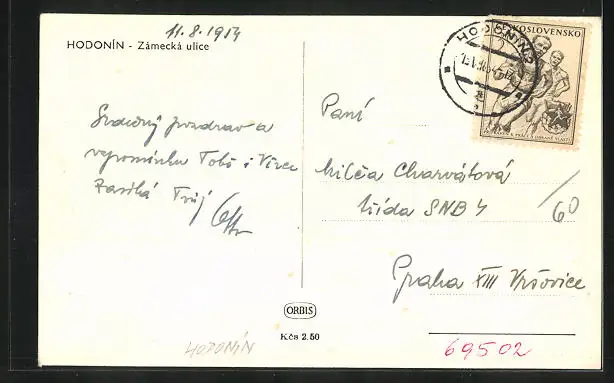 11.8.1954
HODONÍN - Zámecká ulice
Srdečný pozdrav a
vzpomínku Tobě i Věrce
Zasílá Tvůj
ORBIS
Kčs 2.50
HODONÍN
ČESKOSLOVENSKO
HODONÍN 2
Paní
Charvátová
třída SNB 4
/60
Praha XIII Vršovice
69502